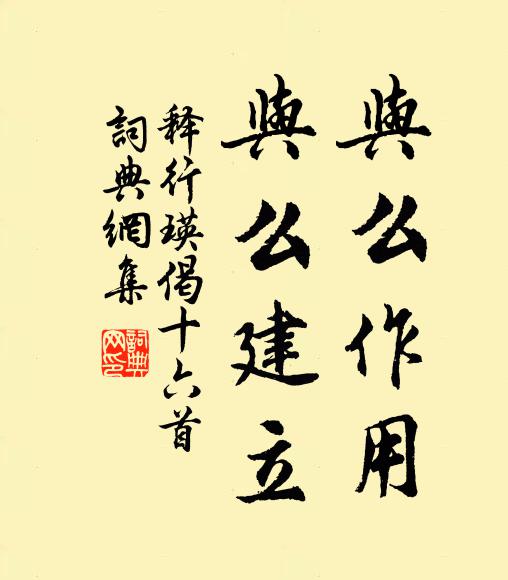 與么作用
與么建立
释行瑛偈十六首
詞典網集
詞典
网印